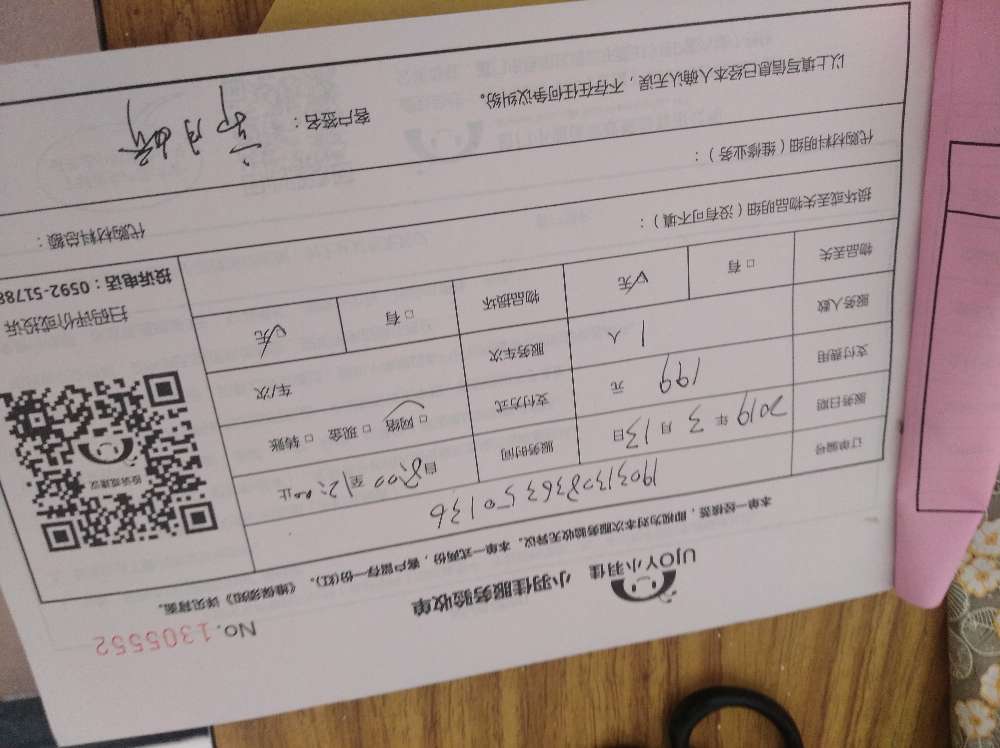 No.1305552
UJOY小羽佳 小羽佳服务验收单
本单一经接签,即视为对本次服务验收无异议。本单一式两份,客户留存一份(红)。《维保须知》详见背面。
订单编号 190313083635 0136
服务日期 2019 年 3 月 13 日 服务时间 自 8:00 至 12:00 止
支付费用 199 元 支付方式 □ 网络 □ 现金 □ 转账
服务人数 1 人 服务车次 车/次
物品丢失 □ 有 ☑ 无 物品损坏 □ 有 ☑ 无
投诉或建议
扫码评价或投诉
投诉电话:0592-51788
损坏或丢失物品明细(没有可不填):
代购材料明细(维修业务): 代购材料总额:
以上填写信息已经本人确认无误,不存在任何争议纠纷。 客户签名: